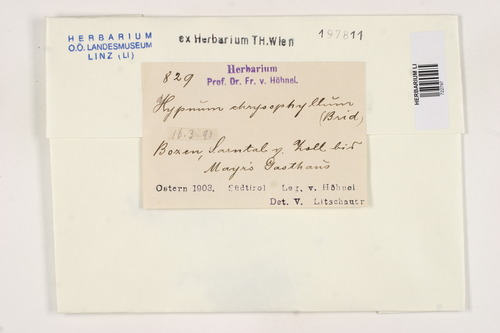 HERBARIUM
O.Ö. LANDESMUSEUM
LINZ (LI)
ex Herbarium TH.Wien
197811
HERBARIUM LI
829
Herbarium
Prof. Dr. Fr. v. Höhnel.
Hypnum chrysophyllum
(Brid)
Bozen, Sarntal v. Zoll bis
Mayrs Gasthaus
Ostern 1903. Südtirol Leg. v. Höhnel
Det. V. Litschauer